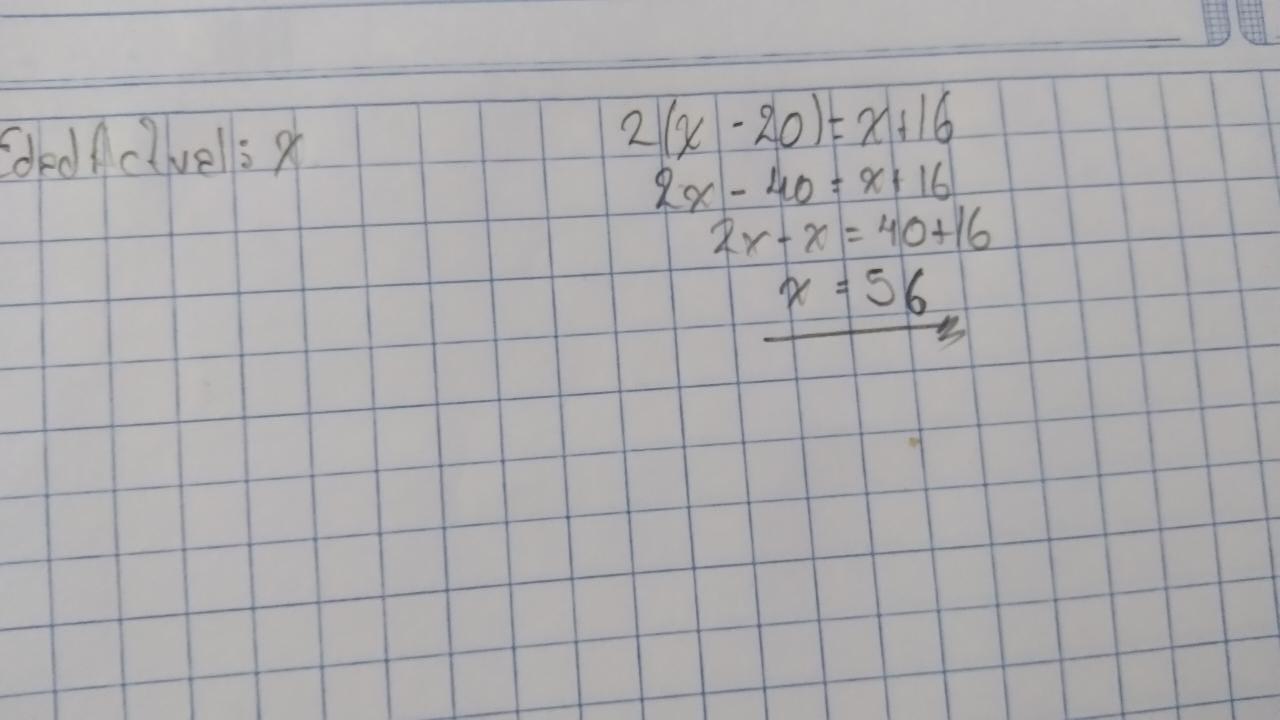 Edad Actual: x
2(x - 20) = x + 16
2x - 40 = x + 16
2x - x = 40 + 16
x = 56